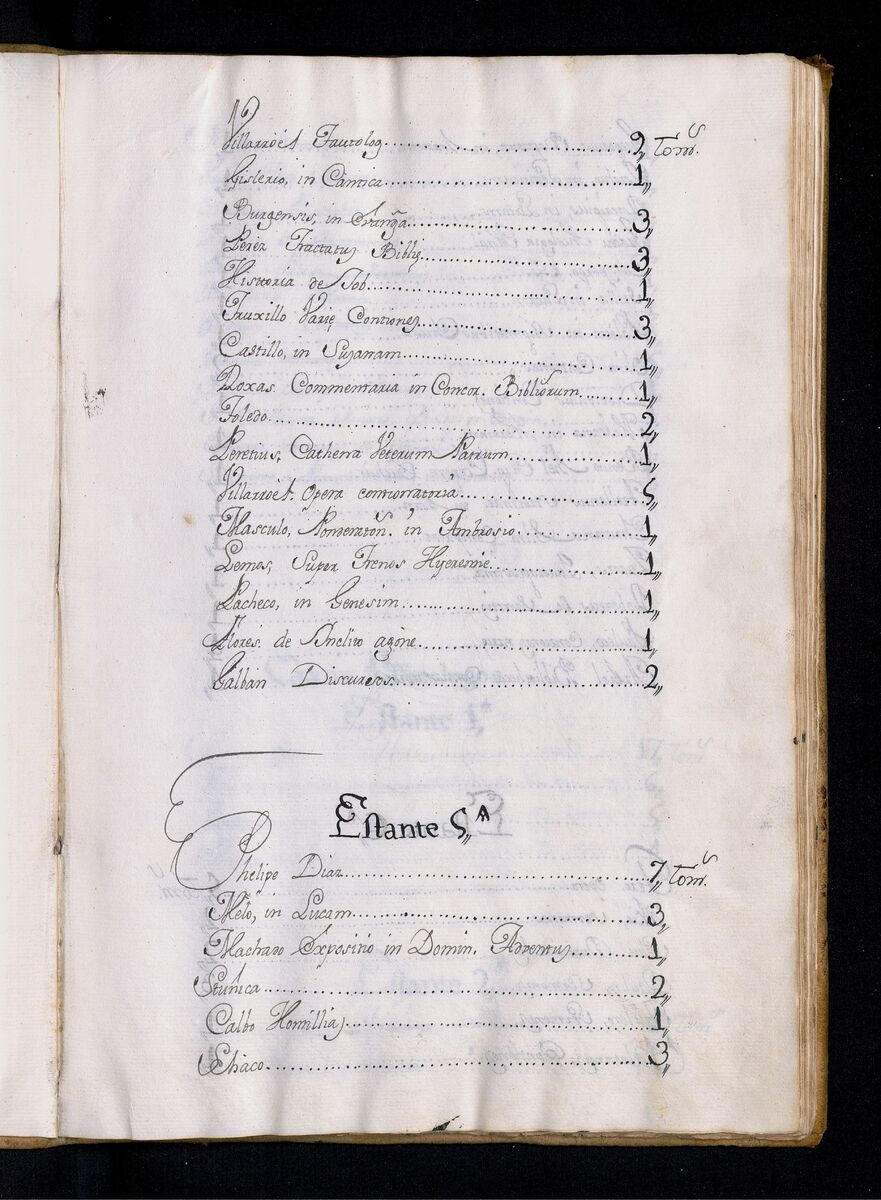 Villarroél Tautolog. 2,, Tom.s
Gislerio, in Cántica 1,,
Burgensis, in 3,,
Perez Tractatus Biblię 3,,
Historia de Job 1,,
Truxillo Varię Contiones 3,,
Castillo, in Susanam 1,,
Roxas. Commentaria in Concor. Bibliorum 1,,
Toledo 2,,
Peretius, Cathena Veterum Patrum 1,,
Villarroél. Opera 5,,
Masculo, in Ambrosio 1,,
Lemos, Super Trenos Hyeremię 1,,
Pacheco, in Genesim 1,,
Flores. de Inclito agóne 1,,
Galbán Discursos 2,,
Estante 5,,ª
Phelipe Diaz 7,, Tom.s
Melo, in Lucam 3,,
Machado Expositio in Domin. Adventus 1,,
Stuñica 2,,
Calbo Homillias 1,,
Chaco 3,,